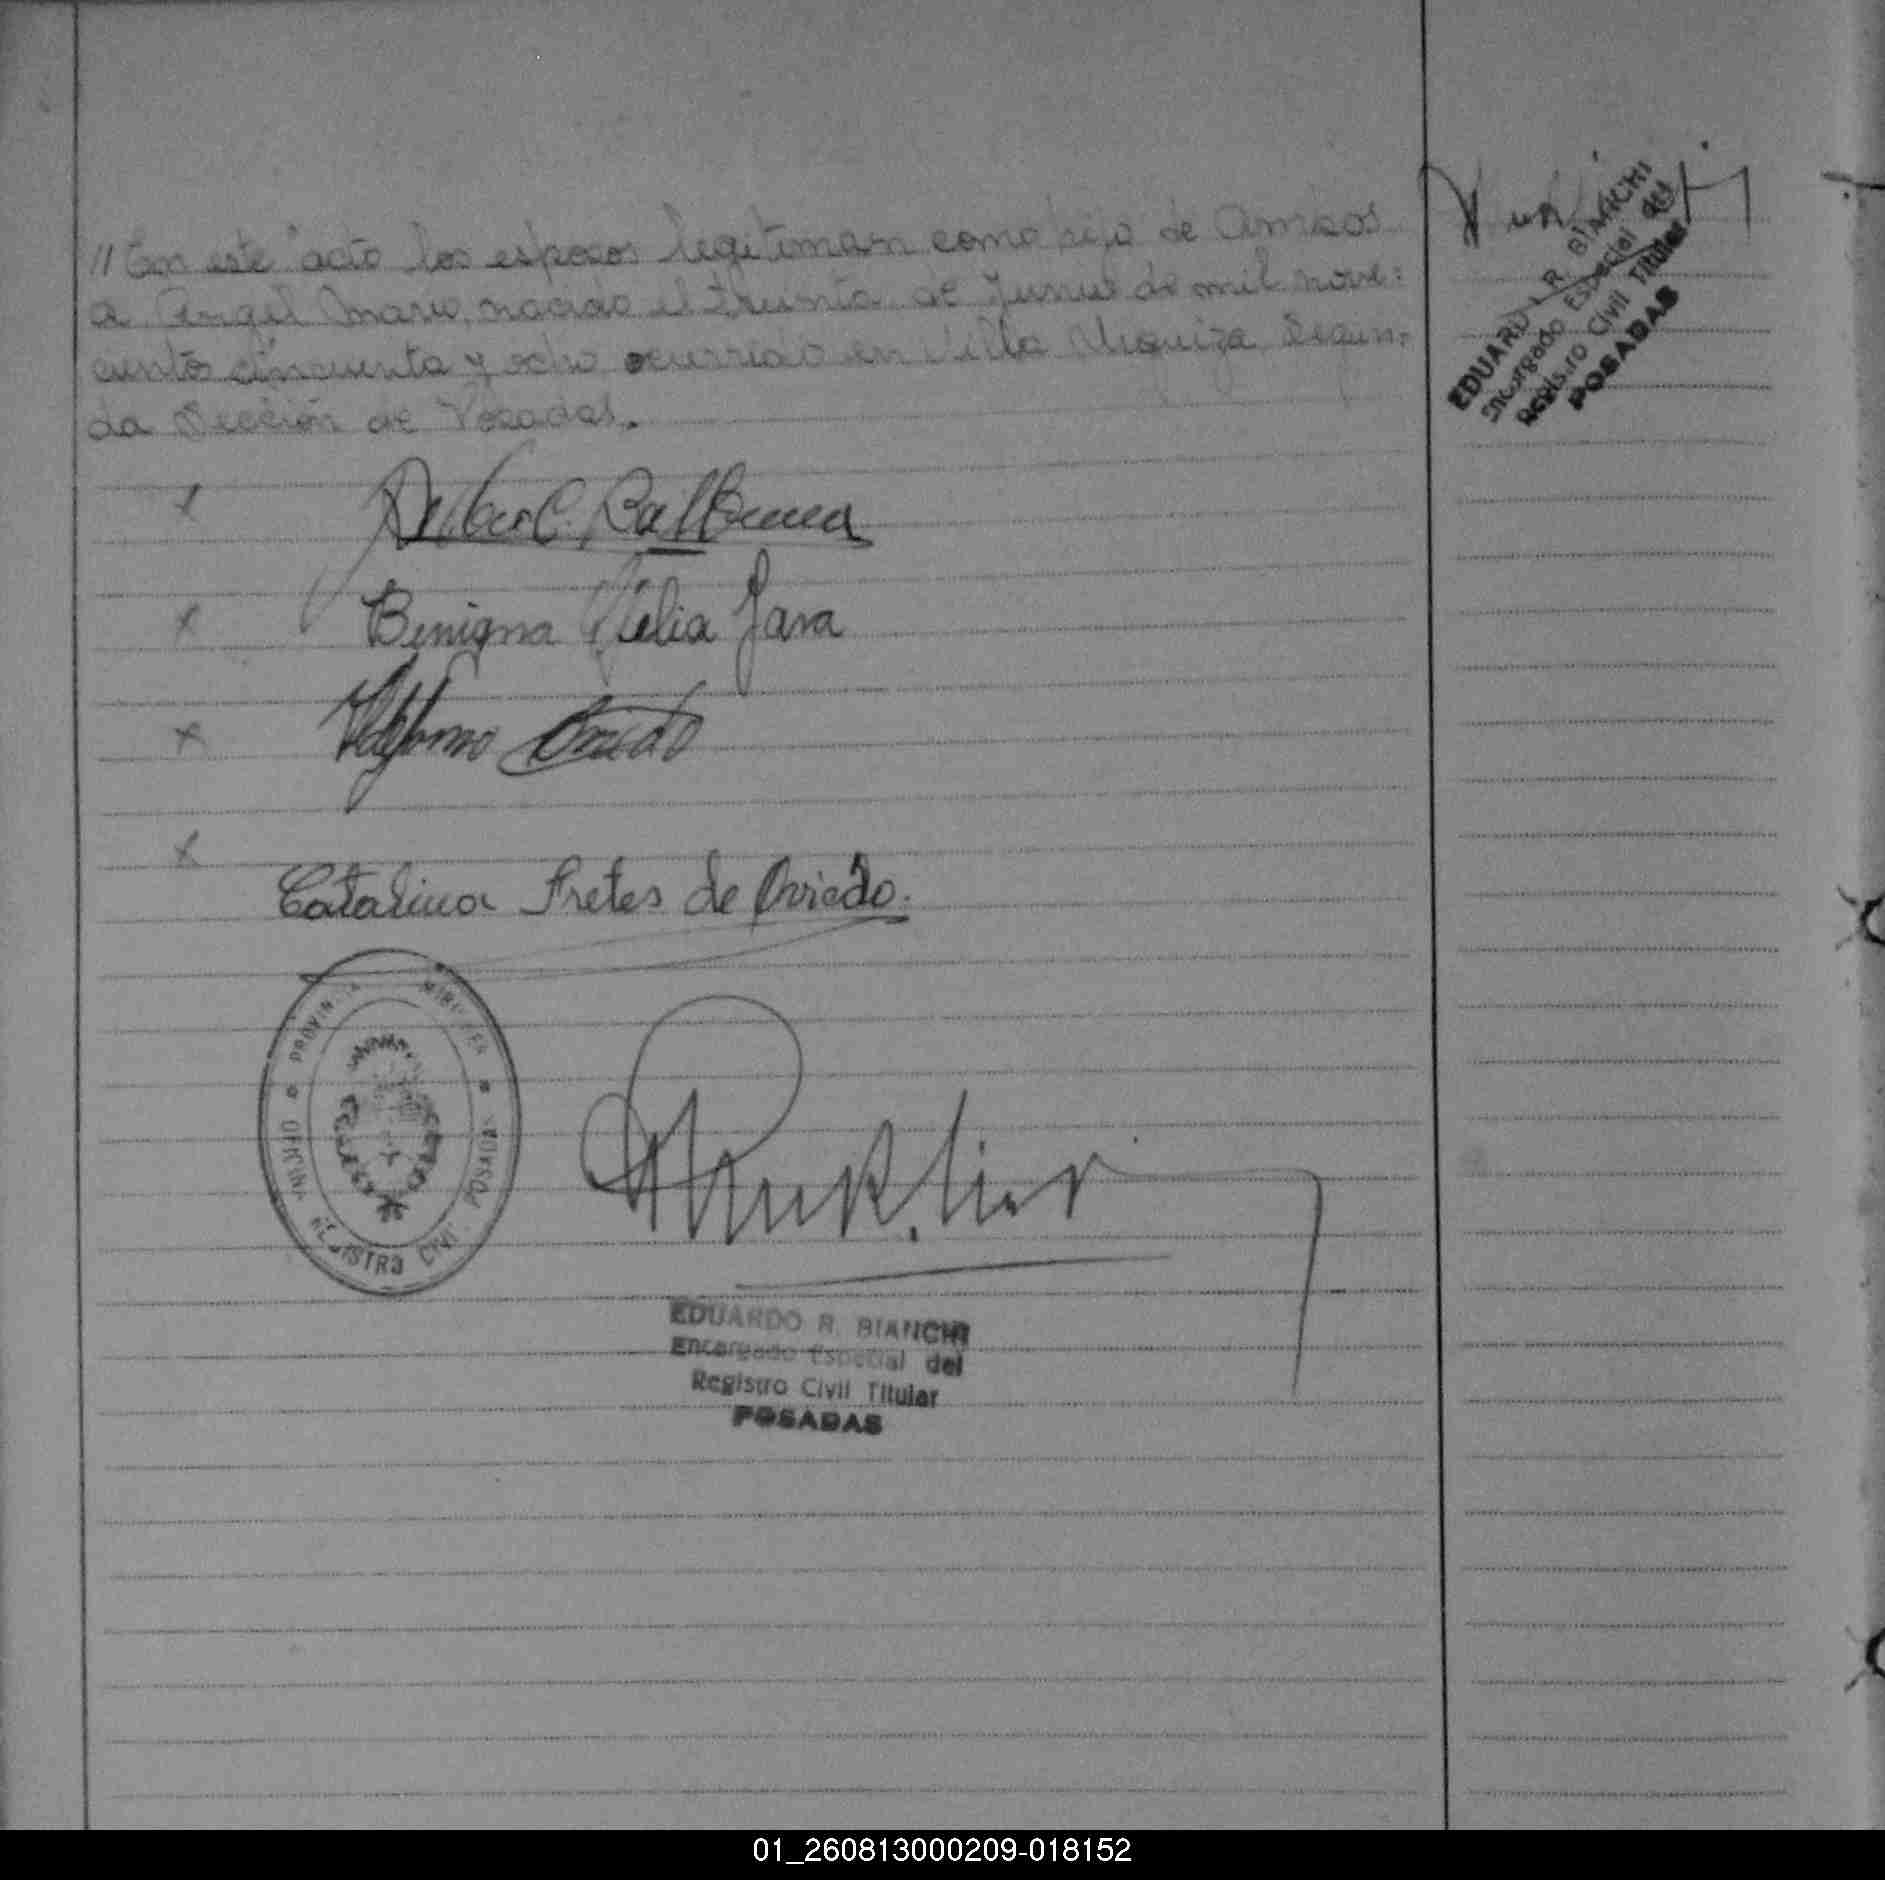 // En este acto los esposos legitiman como hijo de ambos
a Angel Mario, nacido el treinta de Junio de mil nove=
cientos cincuenta y ocho ocurrido en Villa Urquiza Segun=
da Sección de Posadas.
EDUARDO R. BIANCHI
Encargado Especial del
Registro Civil Titular
POSADAS
x
x
Benigna Jara
x
Ildefonso Oviedo
x
Catalina Fretes de Oviedo.
PROVINCIA MISIONES
OFICINA REGISTRO CIVIL POSADAS
EDUARDO R. BIANCHI
Encargado Especial del
Registro Civil Titular
POSADAS
01_260813000209-018152